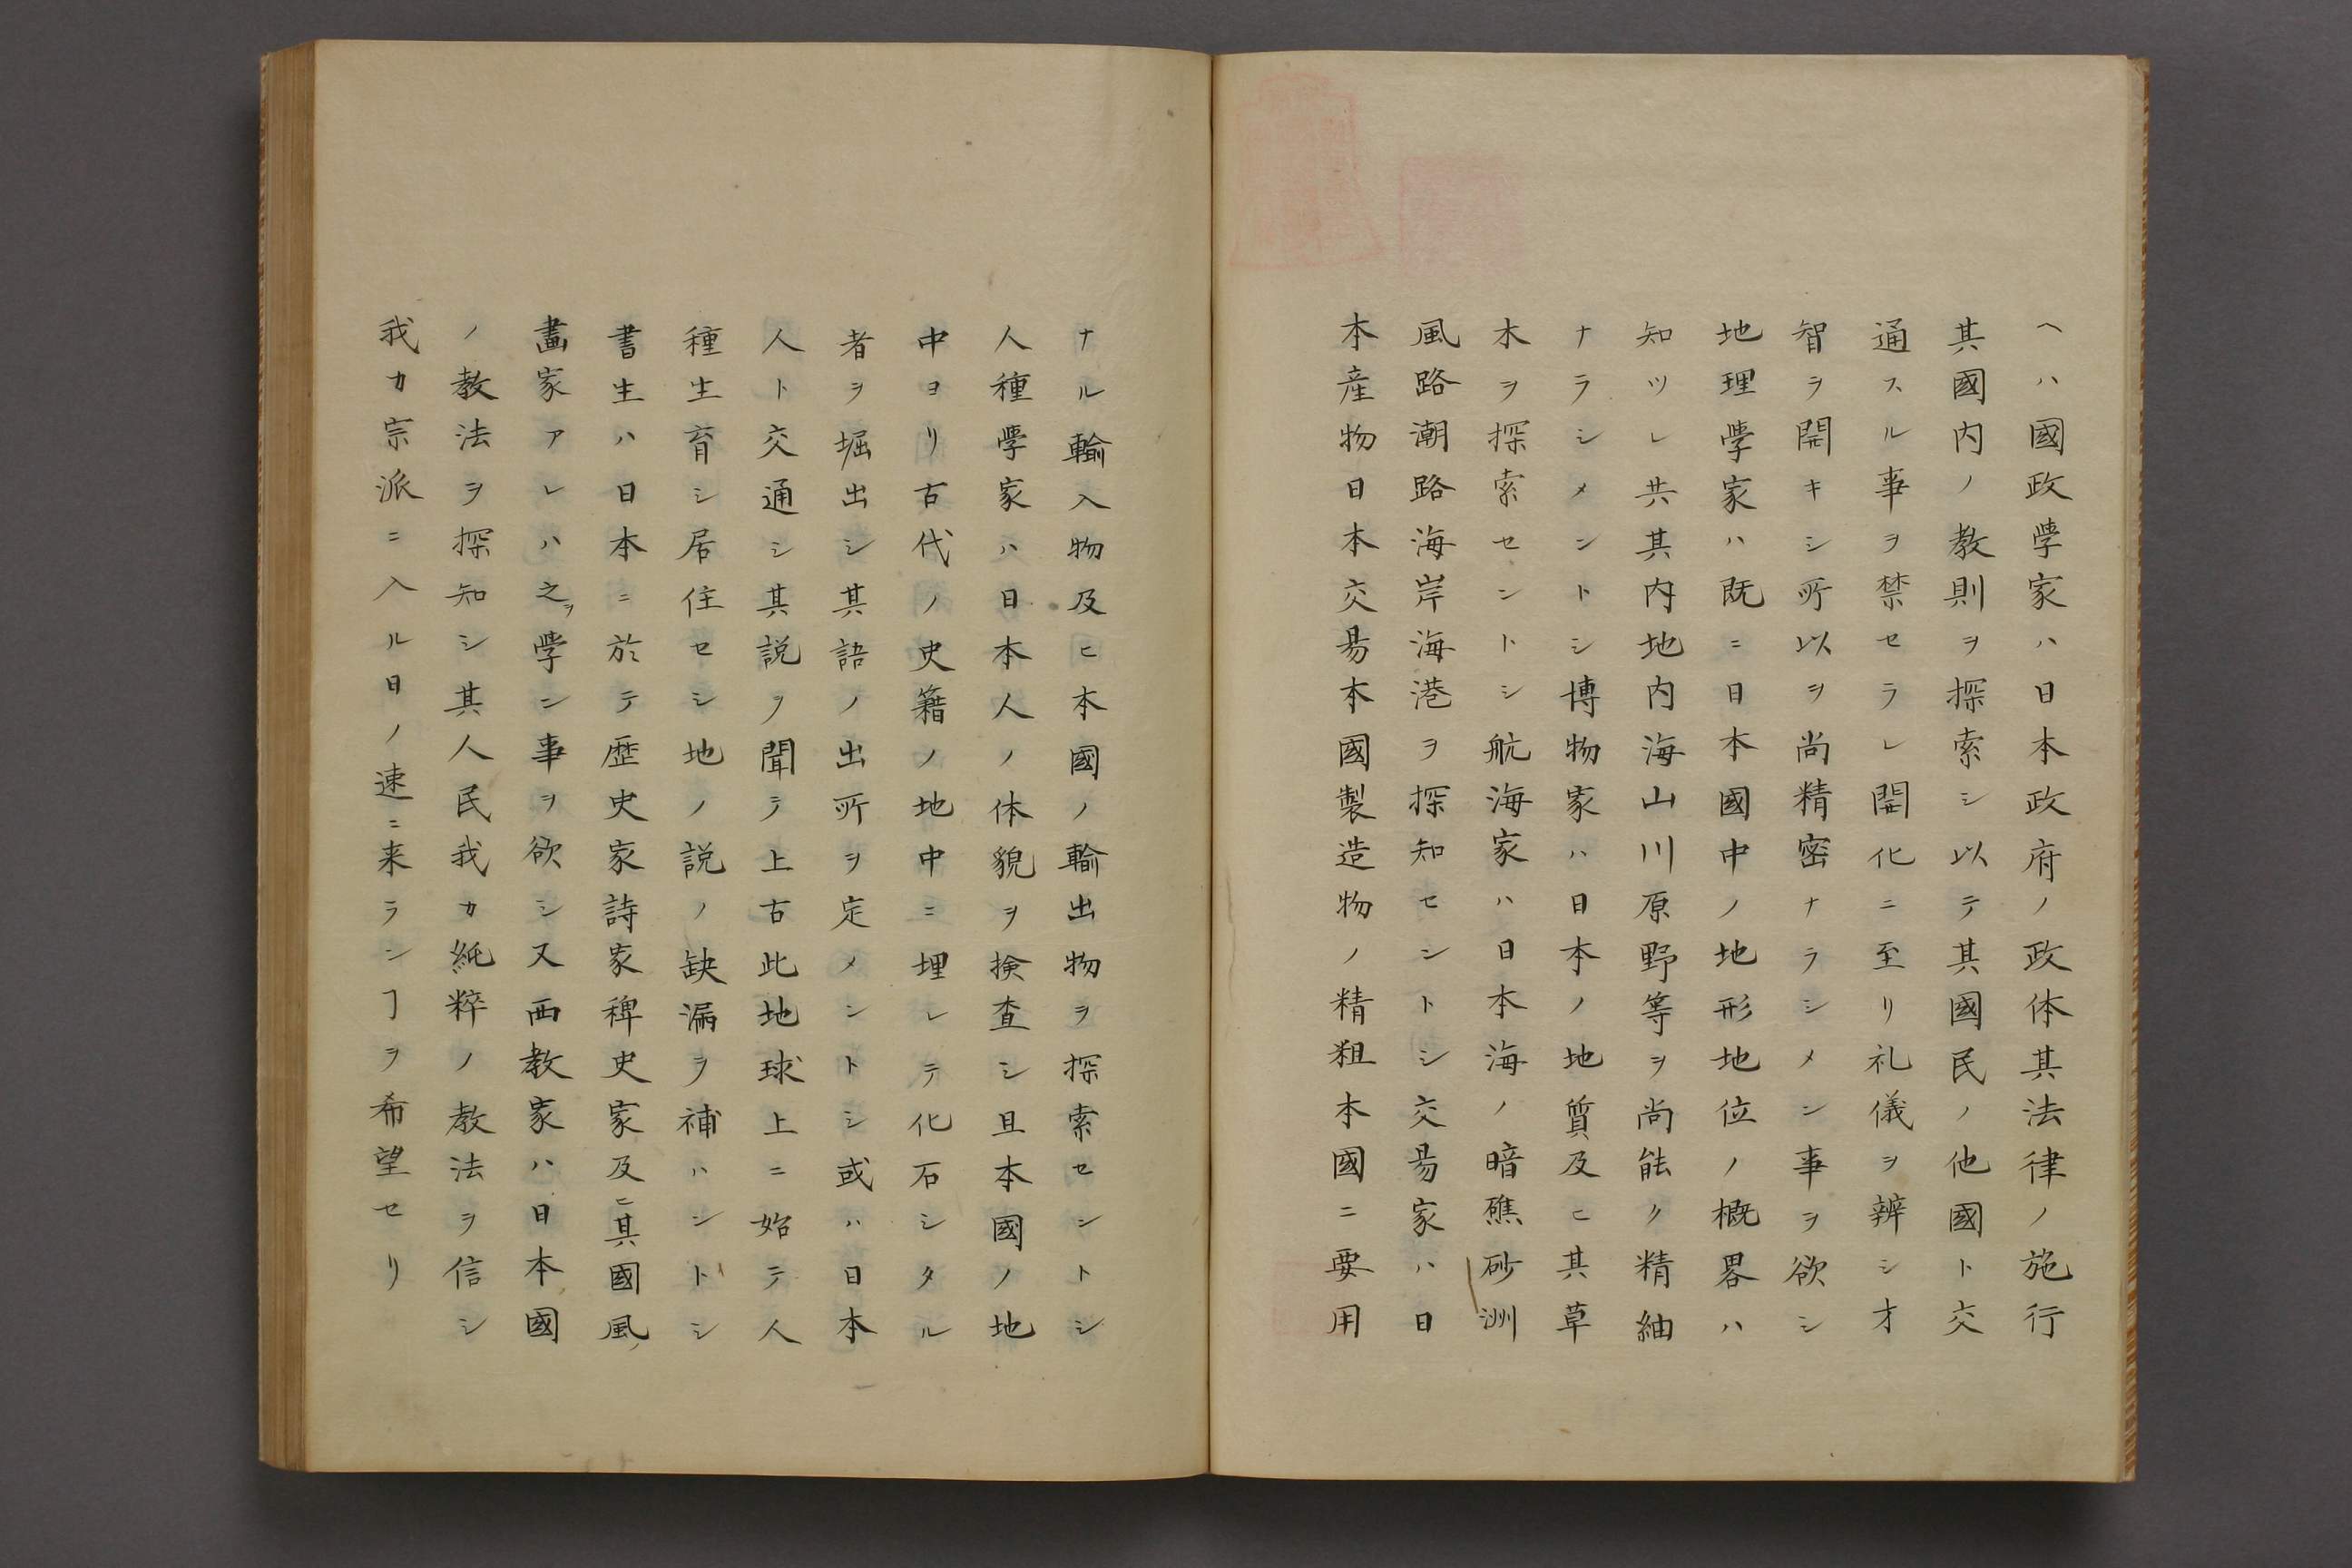 ヘハ國政學家ハ日本政府ノ政体其法律ノ施行
其國内ノ教則ヲ探索シ以テ其國民ノ他國ト交
通スル事ヲ禁セラレ開化ニ至リ礼儀ヲ辨シオ
智ヲ開キシ所以ヲ尚精密ナラシメン事ヲ欲シ
地理學家ハ既ニ日本國中ノ地形地位ノ概畧ハ
知ツレ共其内地内海山川原野等ヲ尚能ク精細
ナラシメントシ博物家ハ日本ノ地質及ヒ其草
木ヲ探索セントシ航海家ハ日本海ノ暗礁砂洲
風路潮路海岸海港ヲ探知セントシ交易家ハ日
本産物日本交易本國製造物ノ精粗本國ニ要用
ナル輸入物及ヒ本國ノ輸出物ヲ探索セントシ
人種學家ハ日本人ノ体貌ヲ検査シ且本國ノ地
中ヨリ古代ノ史籍ノ地中ニ埋レテ化石シタル
者ヲ堀出シ其語ノ出所ヲ定メントシ或ハ日本
人ト交通シ其説ヲ聞テ上古此地球上ニ始テ人
種生育シ居住セシ地ノ説ノ缺漏ヲ補ハントシ
書生ハ日本ニ於テ歴史家詩家稗史家及ヒ其國風ノ
畫家アレハ之ヲ學ン事ヲ欲シ又西教家ハ日本國
ノ教法ヲ探知シ其人民我カ純粹ノ教法ヲ信シ
我カ宗派ニ入ル日ノ速ニ来ランヿヲ希望セリ